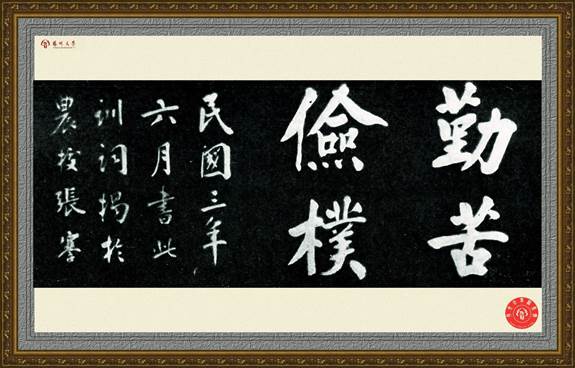 勤苦
儉樸
民國三年
六月書此
訓詞揭於
農校張謇